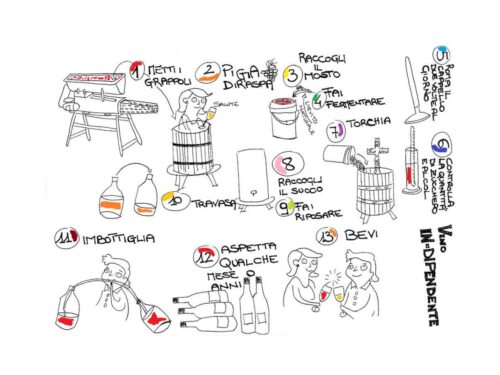 1 METTI I
GRAPPOLI
2 PIGIA
DIRASPA
SALUTE
3 RACCOGLI
IL
MOSTO
4 FAI
FERMENTARE
5 ROMPI IL
CAPPELLO
DUE VOLTE AL
GIORNO
6 CONTROLLA
LA QUANTITÀ
DI ZUCCHERO
E ALCOL
7 TORCHIA
8
RACCOGLI
IL SUCCO
9 FAI
RIPOSARE
10 TRAVASA
11 IMBOTTIGLIA
12 ASPETTA
QUALCHE
MESE O
ANNI
13 BEVI
VINO
IN-DIPENDENTE